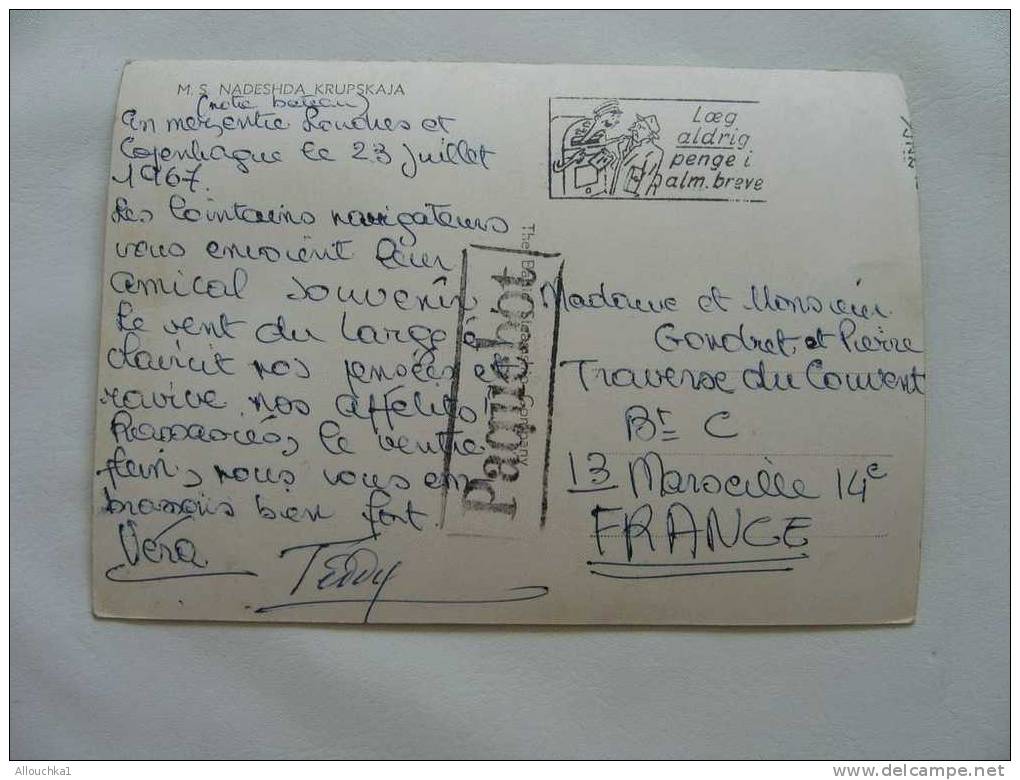 M. S. NADESHDA KRUPSKAJA
(notre bateau)
En mer, entre Londres et
Copenhague le 23 juillet
1967.
Les lointains navigateurs
vous envoient leur
amical souvenir
Le vent du large é-
claircit nos pensées et
ravive nos affections
Rassasiés, le ventre
plein, nous vous em
brassons bien fort.
Véra
Teddy
Læg
aldrig
penge i
alm. breve
Paquebot
The Baltic Steamship Company
Madame et Monsieur
Gondret et Pierre
Traverse du Couvent
Bt C
13 Marseille 14e
FRANCE
Allouchka1
www.delcampe.net